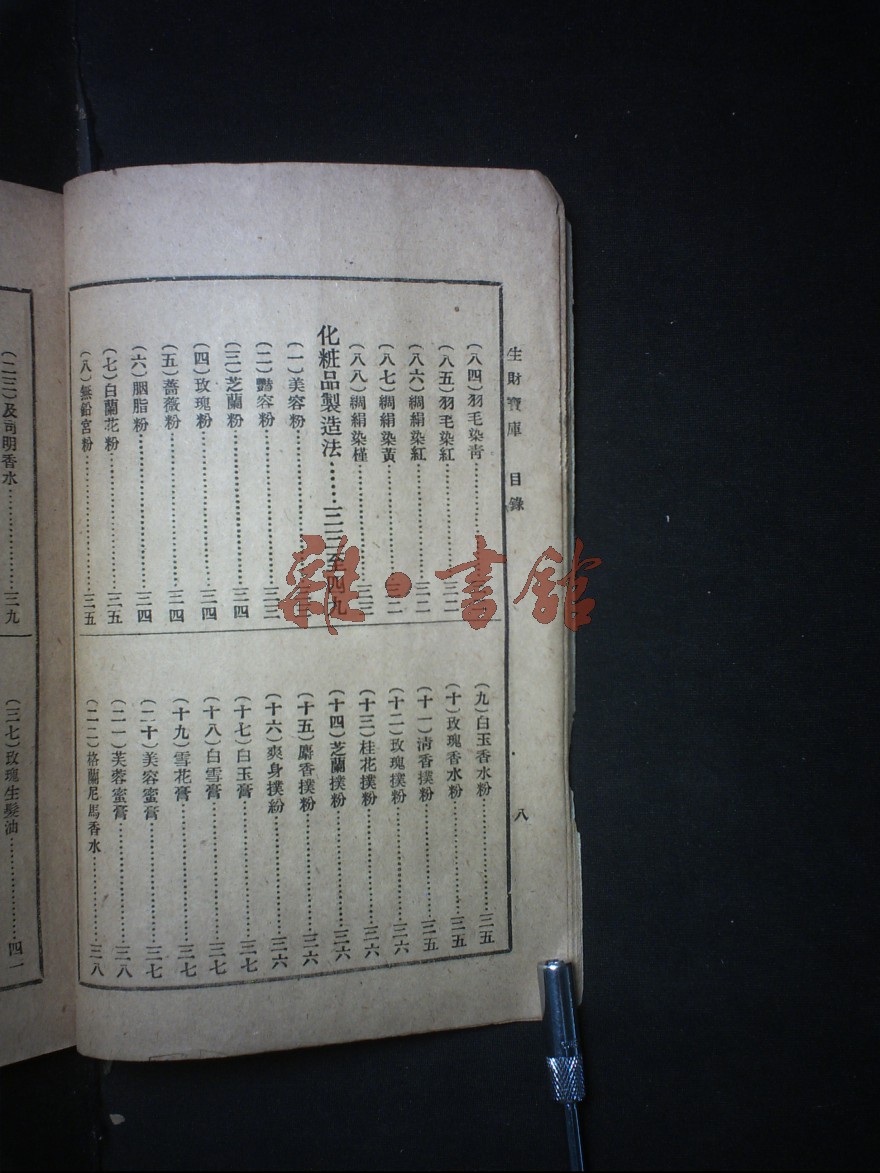 生財寶庫 目錄 八
(八四)羽毛染靑
(八五)羽毛染紅
(八六)綢絹染紅
(八七)綢絹染黃
(八八)綢絹染槿
化粧品製造法……三三至四九
(一)美容粉
(二)豔容粉……三三
(三)芝蘭粉……三四
(四)玫瑰粉……三四
(五)薔薇粉……三四
(六)胭脂粉……三四
(七)白蘭花粉……三五
(八)無鉛宮粉……三五
(九)白玉香水粉……三五
(十)玫瑰香水粉……三五
(十一)淸香撲粉……三五
(十二)玫瑰撲粉……三六
(十三)桂花撲粉……三六
(十四)芝蘭撲粉……三六
(十五)麝香撲粉……三六
(十六)爽身撲粉……三六
(十七)白玉膏……三七
(十八)白雪膏……三七
(十九)雪花膏……三七
(二十)美容蜜膏……三七
(二一)芙蓉蜜膏……三八
(二二)格蘭尼馬香水……三八
(二三)及司明香水……三九
(三七)玫瑰生髮油……四二
雜·書館